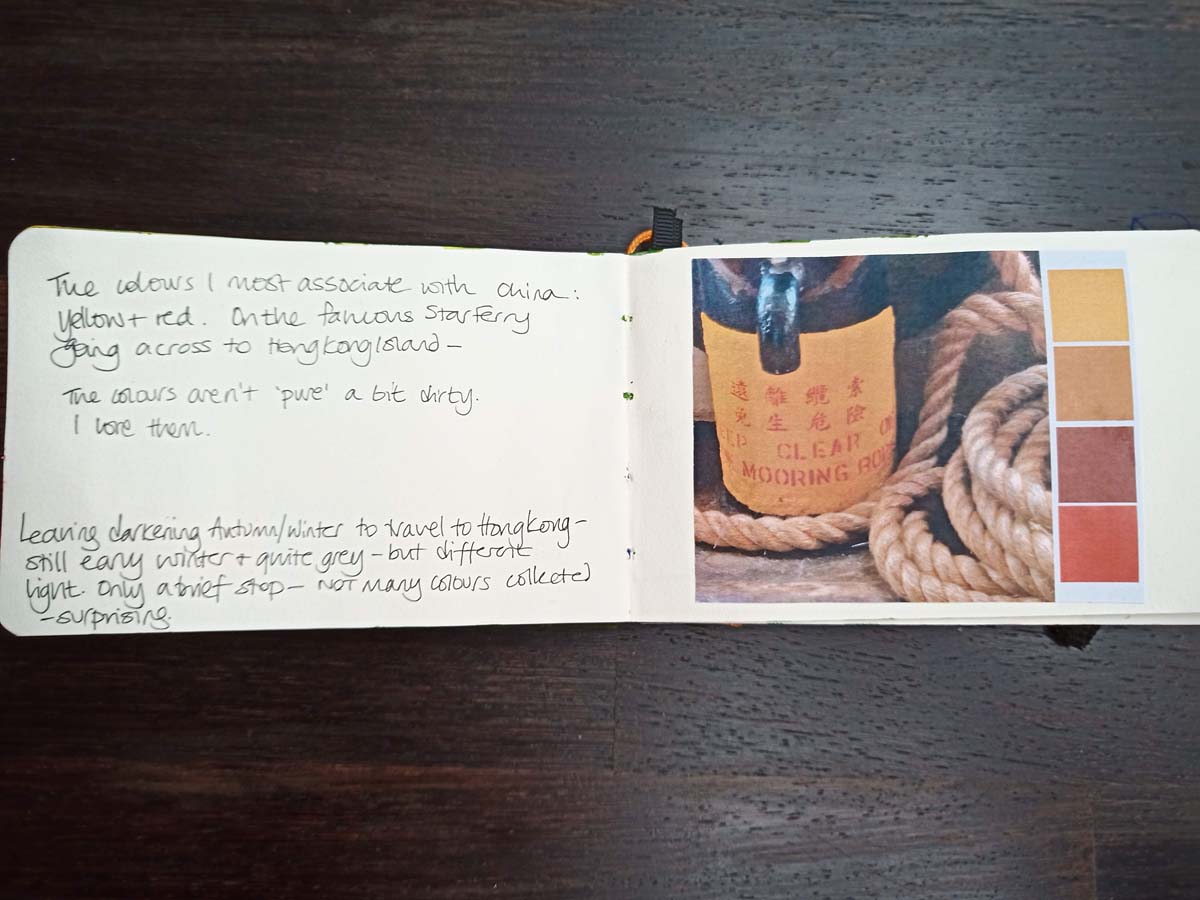 The colours I most associate with China:
Yellow + red. On the famous Star Ferry
going across to Hong Kong Island –
The colours aren't 'pure' a bit dirty.
I love them.
Leaving darkening Autumn/Winter to travel to Hong Kong –
still early winter + quite grey – but different
light. Only a brief stop – NOT many colours collected
– surprising.
遠離纜索
免生危險
CLEAR
MOORING